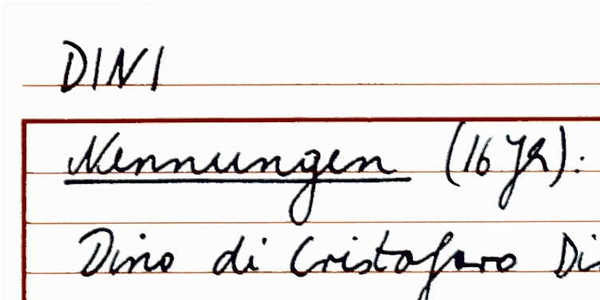 DINI
Nennungen (16 Jh):
Dino di Cristofaro Di